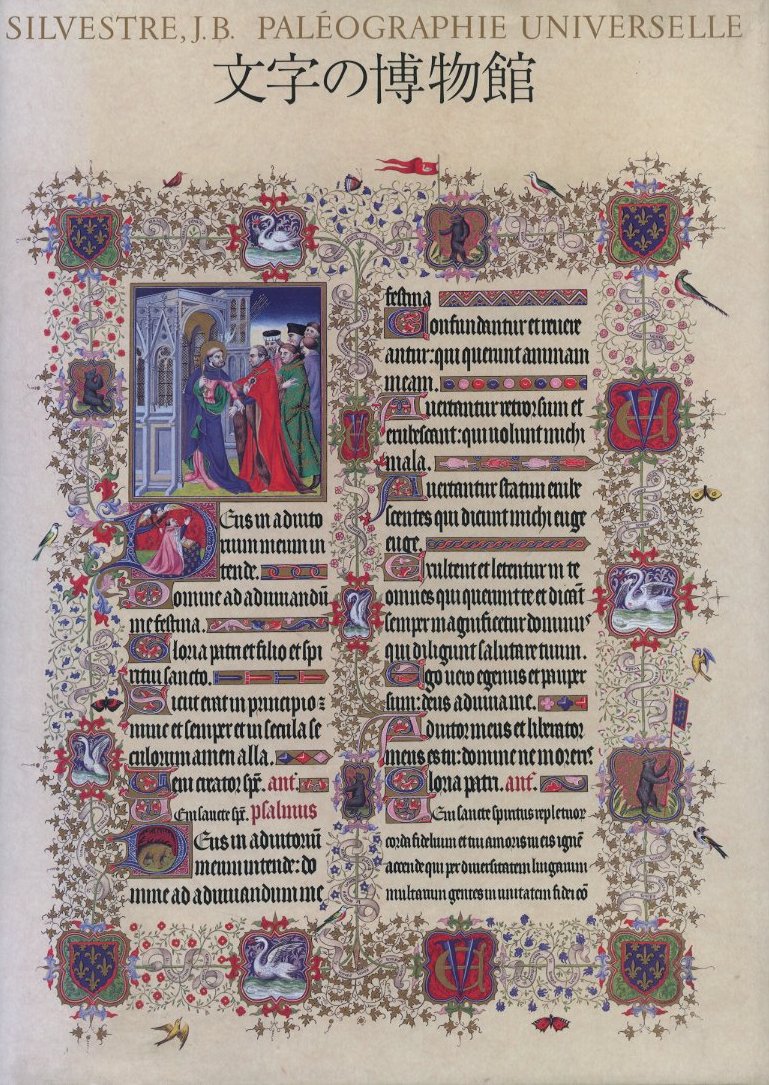 SILVESTRE, J.B. PALÉOGRAPHIE UNIVERSELLE
文字の博物館
Deus in adiuto
rium meum in
tende.
Domine ad adiuuandū
me festina.
Gloria patri et filio et spi
ritui sancto.
Sicut erat in principio:
nunc et semper et in secula se
culorum amen alla.
Veni creator sp̄c. ant̄.
Veni sancte sp̄c. psalmus
Deus in adiutoriū
meum intende: do
mine ad adiuuandum me
festina
Confundantur et reuere
antur: qui querunt animam
meam.
Auertantur retrorsum et
erubescant: qui uolunt michi
mala.
Auertantur statim erube
scentes qui dicunt michi euge
euge.
Exultent et letentur in te
omnes qui querunt te et dicāt
semper magnificetur dominus
qui diligunt salutare tuum.
Ego uero egenus et pauper
sum: deus adiuua me.
Adiutor meus et liberator
meus es tu: domine ne moreris
Gloria patri. ant̄.
Veni sancte spiritus reple tuor
corda fidelium et tui amoris in eis ignē
accende qui per diuersitatem linguarum
multarum gentes in unitatem fidei cō